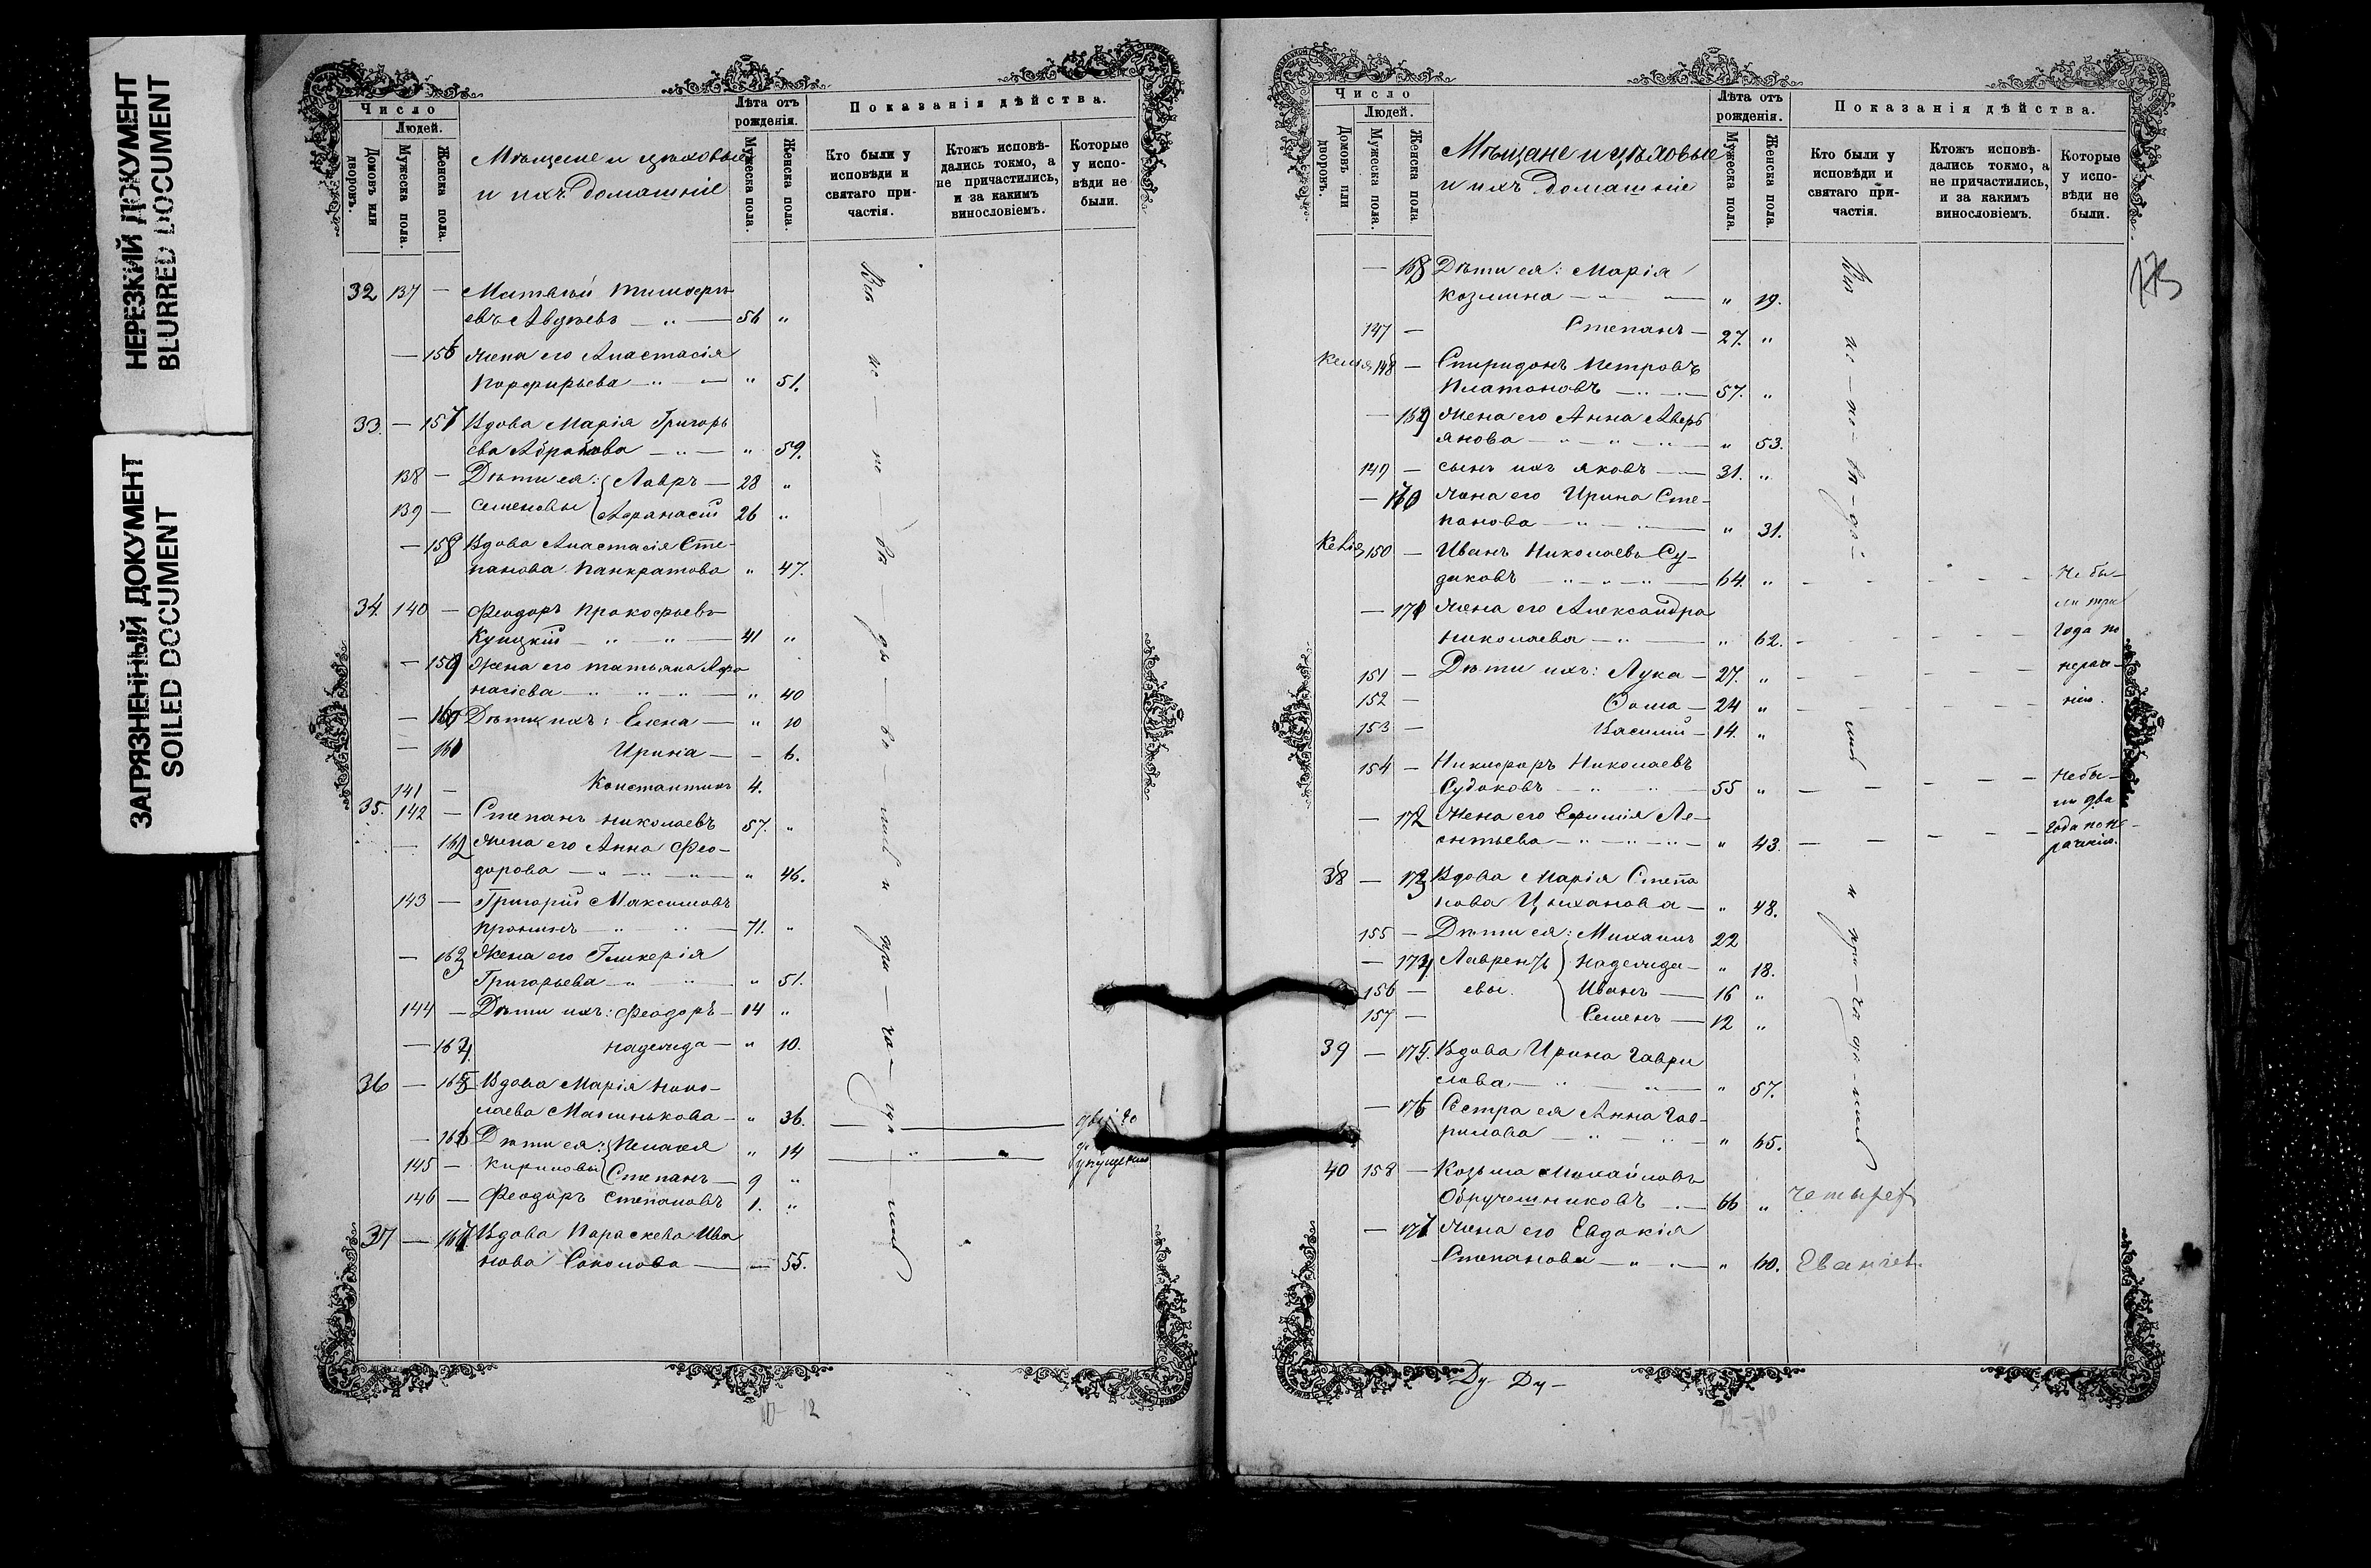 НЕРЕЗКИЙ ДОКУМЕНТ
BLURRED DOCUMENT
ЗАГРЯЗНЕННЫЙ ДОКУМЕНТ
SOILED DOCUMENT
Число
Людей.
Домовъ или дворовъ.
Мужеска пола.
Женска пола.
Мѣщане и цѣховые
и ихъ домашніе
Лѣта отъ рожденія.
Мужеска пола.
Женска пола.
Показанія дѣйства.
Кто были у исповѣди и святаго причастія.
Ктожъ исповѣдались токмо, а не причастились, и за какимъ винословіемъ.
Которые у исповѣди не были.
32 137 — Матвѣй Тимофе
евъ Авдѣевъ — 56 "
— 156 Жена его Анастасія
Порфирьева — " 51.
33. — 157 Вдова Марія Григорь
ева — " 59.
138 — Дѣти ея: Лавръ — 28 "
139 — Семеновы Афанасій 26 "
— 158 Вдова Анастасія Сте-
панова Панкратова " 47.
34. 140 — Феодоръ Прокофьевъ
Купцкій — 41 "
— 159 Жена его Татьяна Афа
насіева — " 40
— 160 Дѣти ихъ: Елена — " 10
— 161 Ирина — - 6.
141 — Константинъ 4.
35. 142 — Степанъ Николаевъ 57. "
— 162 Жена его Анна Фео-
дорова — " 46.
143 — Григорій Максимовъ
Пронинъ — 71. "
— 163 Жена его Гликерія
Григорьева — " 51.
144 — Дѣти ихъ: Феодоръ — 14 "
— 164 Надежда — " 10.
36 — 165 Вдова Марія Нико-
лаева Масинькова — " 36.
— 166 Дѣти ея: Пелагея " 14
145 — Кириловы Степанъ — 9 "
146 — Феодоръ Степановъ 1. "
37 — 167 Вдова Параскева Ива
нова Соколова — 55.
Всѣ ис-по-вѣ-ды-ва-лись и при-ча-ща-лись
упущенію
10 - 12
Число
Людей.
Домовъ или дворовъ.
Мужеска пола.
Женска пола.
Мѣщане и цѣховые
и ихъ домашніе
Лѣта отъ рожденія.
Мужеска пола.
Женска пола.
Показанія дѣйства.
Кто были у исповѣди и святаго причастія.
Ктожъ исповѣдались токмо, а не причастились, и за какимъ винословіемъ.
Которые у исповѣди не были.
173
— 168 Дѣти ея: Марія
Козмина — " 19.
147 — Степанъ — 27. "
Келія 148 — Спиридонъ Петровъ
Платоновъ — 57. "
— 169 Жена его Анна Аверь
янова — " 53.
149 — сынъ ихъ Яковъ — 31. "
— 170 Жена его Ирина Сте-
панова — " 31.
Келія 150 — Иванъ Николаевъ Су-
даковъ — 64. " Не бы-
— 171 Жена его Александра ли три
Николаева — " 62. года по
151 — Дѣти ихъ: Лука — 27. " нераде-
152 — Фома — 24 " нію.
153 — Василій — 14. "
154 — Никифоръ Николаевъ
Судаковъ — 55 " Не бы-
— 172 Жена его Ефимія Ле- ли два
онтьева — " 43. года по не-
38 — 173 Вдова Марія Степа
нова Цыханова — " 48.
155 — Дѣти ея: Михаилъ 22
— 174 Лаврентье Надежда — " 18.
156 — евы. Иванъ — 16 "
157 — Семенъ — 12 "
39 — 175. Вдова Ирина Гаври
лова — " 57.
— 176 Сестра ея Анна Гав-
рилова — " 65.
40 158 — Козьма Михайловъ
Обручешниковъ — 66 " четырех
— 177 Жена его Евдокія
Степанова — " 60. Евангел.
Ду- Ду-
12-10